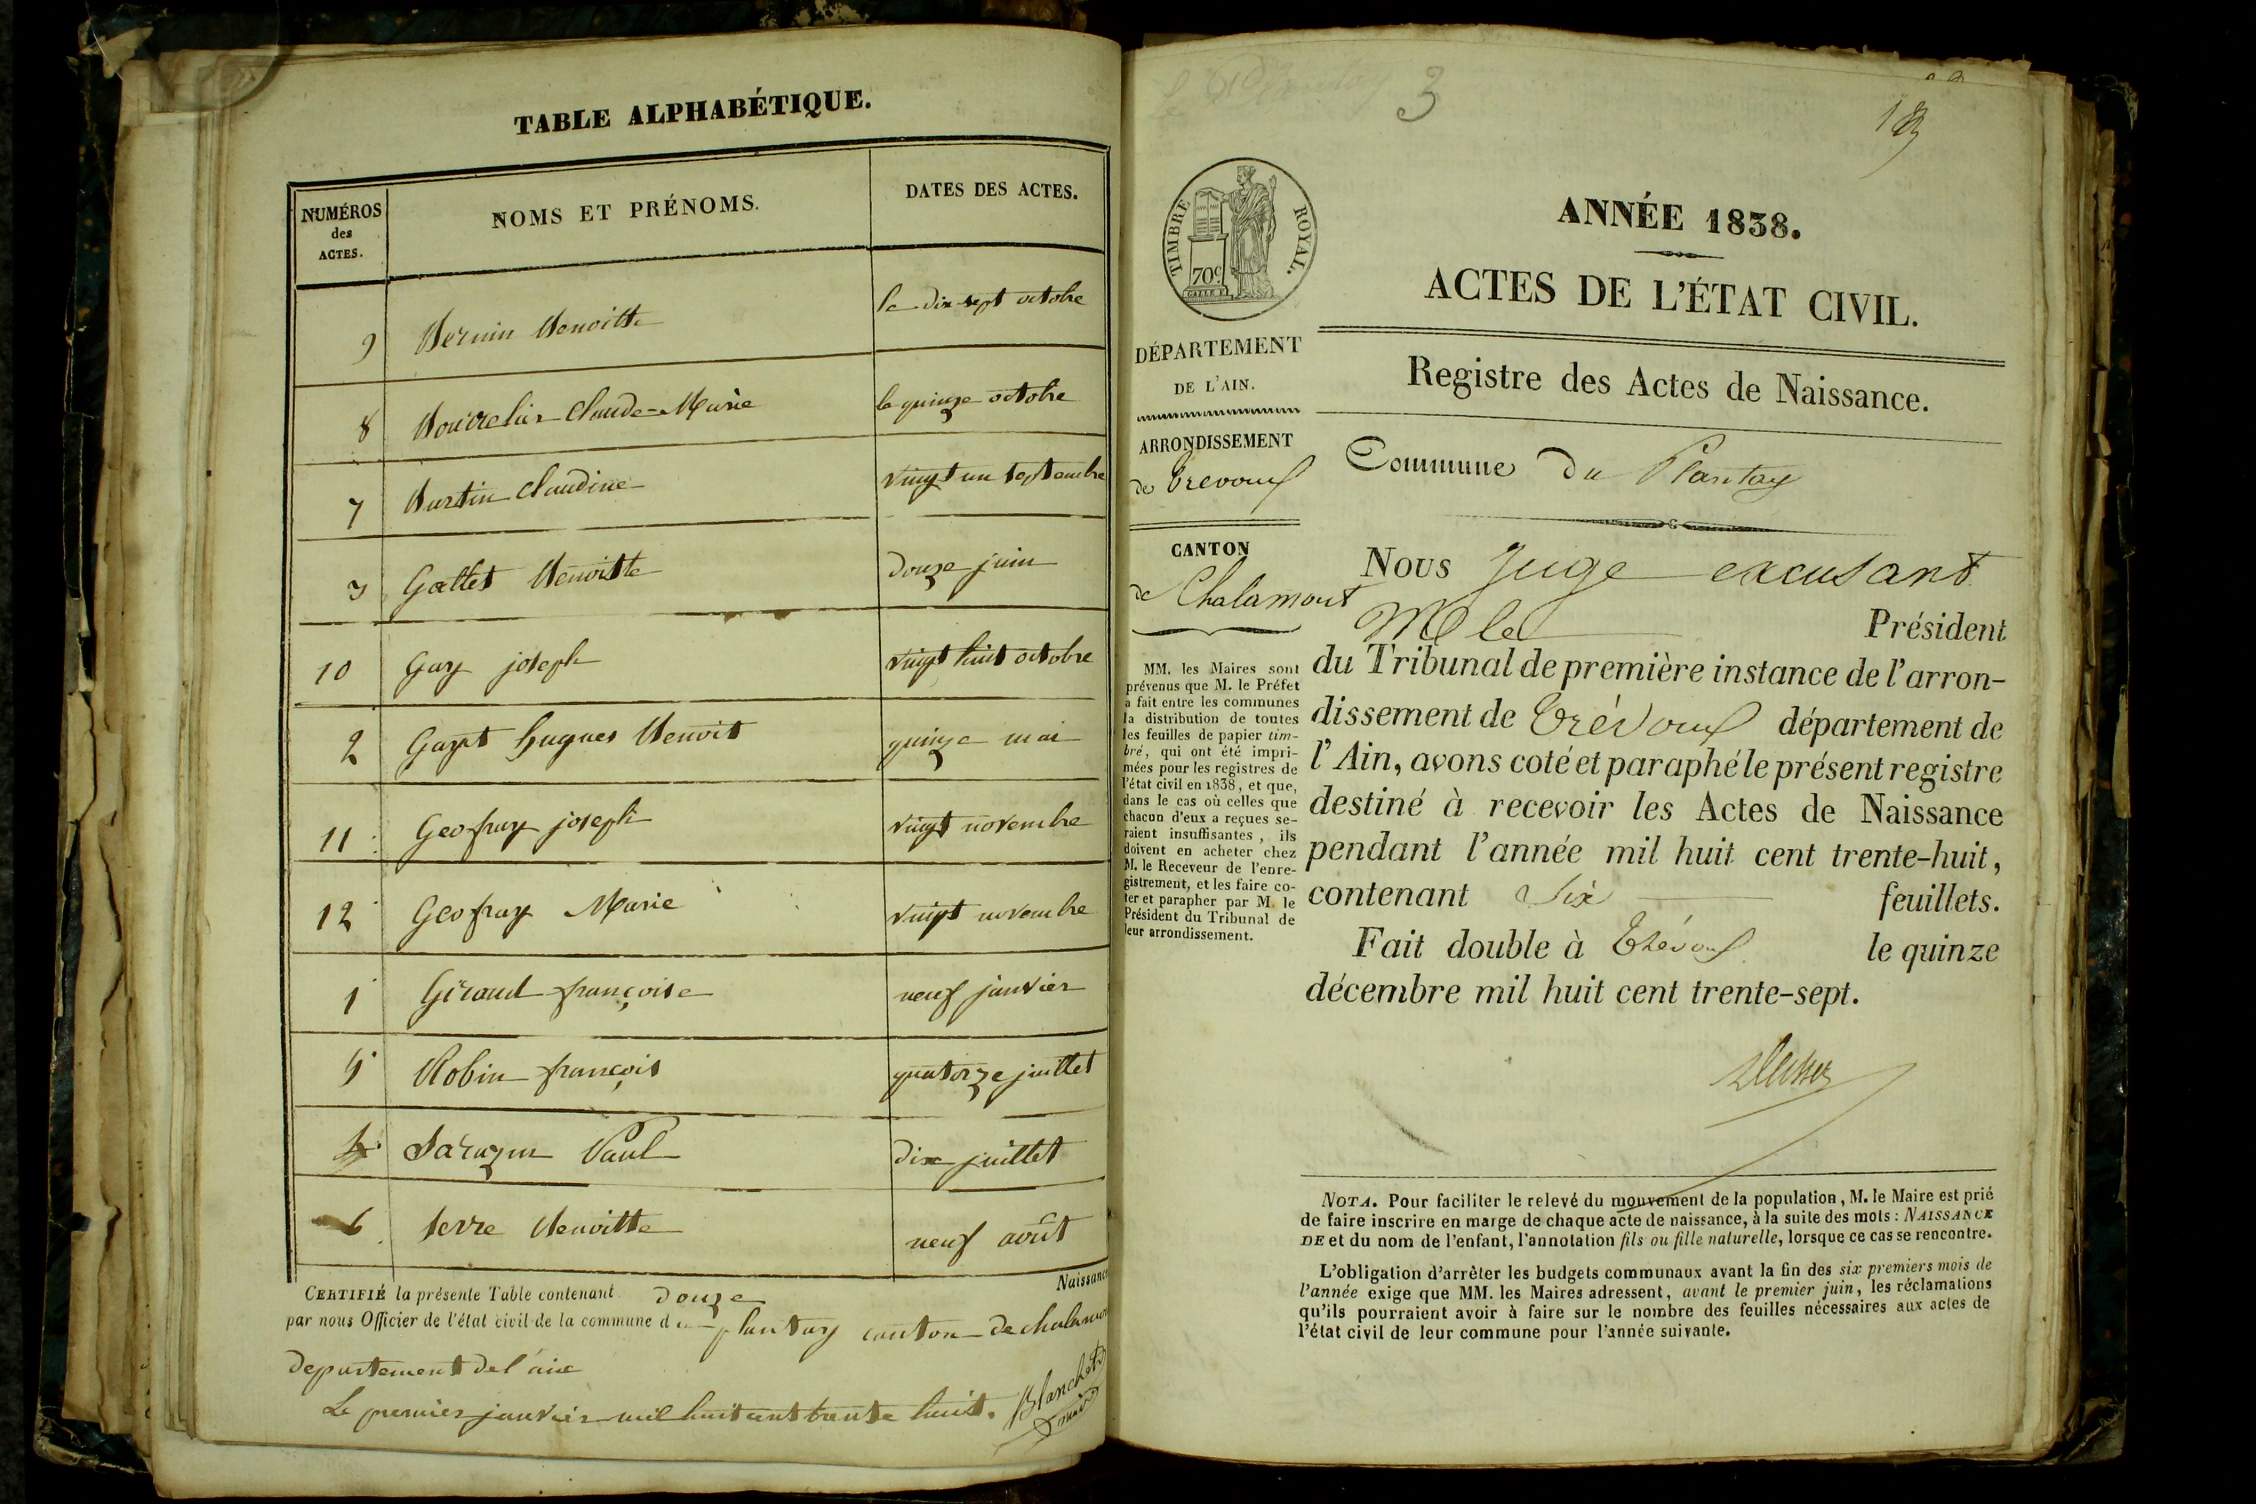 TABLE ALPHABÉTIQUE.
NUMÉROS des ACTES. NOMS ET PRÉNOMS. DATES DES ACTES.
9 Bernin Benoitte le dix-sept octobre
8 Claude-Marie le quinze octobre
7 Claudine vingt un septembre
3 Gallet Benoitte douze juin
10 Guy joseph vingt huit octobre
2 Guyot hugues Benoit quinze mai
11 Geofray joseph vingt novembre
12 Geofray Marie vingt novembre
1 Giraud françoise neuf janvier
5 Robin françois quatorze juillet
4 Sarazin Paul dix juillet
6 Serre Benoitte neuf août
Naissance
CERTIFIÉ la présente Table contenant douze
par nous Officier de l'état civil de la commune du plantay canton de chalamont
departement de l'ain
Le premier janvier mil huit cent trente huit. Blanchet
3
TIMBRE ROYAL.
70c.
DÉPARTEMENT
DE L'AIN.
ARRONDISSEMENT
de Trevoux
CANTON
de Chalamont
MM. les Maires sont
prévenus que M. le Préfet
a fait entre les communes
la distribution de toutes
les feuilles de papier tim-
bré, qui ont été impri-
mées pour les registres de
l'état civil en 1838, et que,
dans le cas où celles que
chacun d'eux a reçues se-
raient insuffisantes, ils
doivent en acheter chez
M. le Receveur de l'enre-
gistrement, et les faire co-
ter et parapher par M. le
Président du Tribunal de
leur arrondissement.
ANNÉE 1838.
ACTES DE L'ÉTAT CIVIL.
Registre des Actes de Naissance.
Commune du Plantay
Nous Juge excusant
M le Président
du Tribunal de première instance de l'arron-
dissement de Trévoux département de
l'Ain, avons coté et paraphé le présent registre
destiné à recevoir les Actes de Naissance
pendant l'année mil huit cent trente-huit,
contenant Six feuillets.
Fait double à Trévoux le quinze
décembre mil huit cent trente-sept.
NOTA. Pour faciliter le relevé du mouvement de la population, M. le Maire est prié
de faire inscrire en marge de chaque acte de naissance, à la suite des mots : NAISSANCE
DE et du nom de l'enfant, l'annotation fils ou fille naturelle, lorsque ce cas se rencontre.
L'obligation d'arrêter les budgets communaux avant la fin des six premiers mois de
l'année exige que MM. les Maires adressent, avant le premier juin, les réclamations
qu'ils pourraient avoir à faire sur le nombre des feuilles nécessaires aux actes de
l'état civil de leur commune pour l'année suivante.